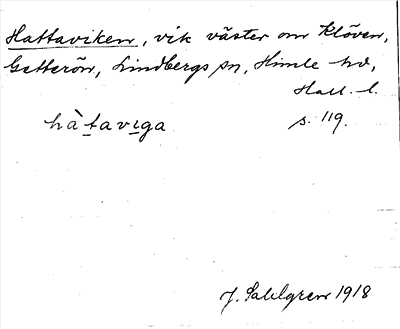 Hattaviken, vik väster om Klöven,
Getterön, Lindbergs sn, Himle hd,
Hall. l.
hàtaviga s. 119.
J. Sahlgren 1918